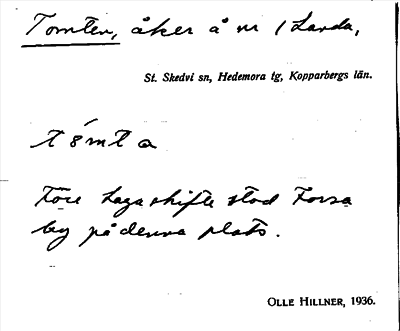 Tomten, åker å nr 1 Landa,
St. Skedvi sn, Hedemora tg, Kopparbergs län.
Före laga skifte stod Forsa
by på denna plats.
OLLE HILLNER, 1936.